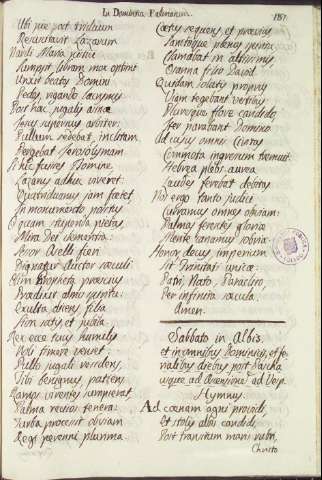 In Dominica Palmarum.
187.
Ubi pie post triduum
Resuscitavit Lazarum
Nardi Maria pistici
Sumpsit libram mox optimi
Unxit beatos Domini
Pedes, rigando lacrymis
Post haec jugalis asinae
Jesus supernus arbiter
Pullum sedebat, inclitam
Pergebat Jerosolymam
Lazarus adhuc viveret
Quatriduanus jam foetet
In monumento positus
O quam stupenda pietas
Mira Dei clementia
Sessor aselli fieri
Dignatur auctor saeculi
Olim Propheta praescius
Praedixit almo spiritu
Exulta dicens filia
Sion satis et jubila
Rex ecce tuus humilis
Noli timere veniet
Pullo jugali residens
Tibi benignus patiens
Ramos virentes sumpserat
Palma recisos tenera
Turba processit obviam
Regi perenni plurima.
Coetus sequens, et praevius
Sanctoque plenus spiritu
Clamabat in altissimis
Osanna filio David
Quidam solutis propriis
Viam tegebant vestibus
Pluresque flores candidos
Iter parabant Domino
Ad cujus omnis Civitas
Commota ingressum tremuit
Hebraea plebs aurea
Laudes ferebat debitas
Nos ergo tanto Judici
Curramus omnes obviam
Palmas ferentes gloriae
Mente canamus sobria
Honor, decus, imperium
Sit Trinitati unicae
Patri, Nato, Paraclito,
Per infinita saecula.
Amen.
Sabbato in Albis.
et in omnibus Dominicis, et fe-
rialibus diebus post Pascha
usque ad Ascensionem ad Vesp.
Hymnus.
Ad coenam agni providi,
Et stolis albis candidi,
Post transitum maris rubri,
Christo